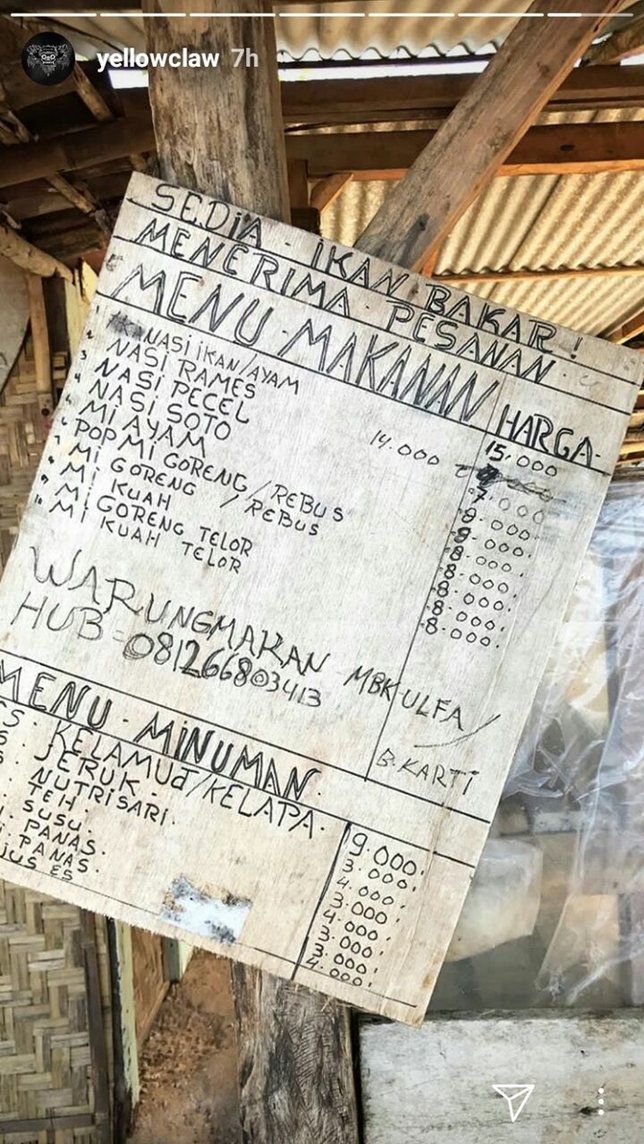 yellowclaw 7h
SEDIA - IKAN BAKAR!
MENERIMA - PESANAN.
MENU - MAKANAN HARGA.
NASI IKAN/AYAM 15.000
NASI RAMES 14.000
NASI PECEL
NASI SOTO
MI AYAM
POP MI GORENG / REBUS
MI GORENG / REBUS
MI KUAH
MI GORENG TELOR
MI KUAH TELOR
7.000
8.000.
9.000.
8.000.
8.000.
8.000.
8.000.
8.000.
WARUNGMAKAN MBK ULFA /
HUB = 081266803413
B.KARTI
MENU - MINUMAN.
KELAMUd/KELAPA. 9.000.
JERUK. 3.000.
NUTRISARI. 4.000
TEH 3.000
SUSU. 4.000
PANAS. 3.000
PANAS. 3.000
JUS ES 4.000